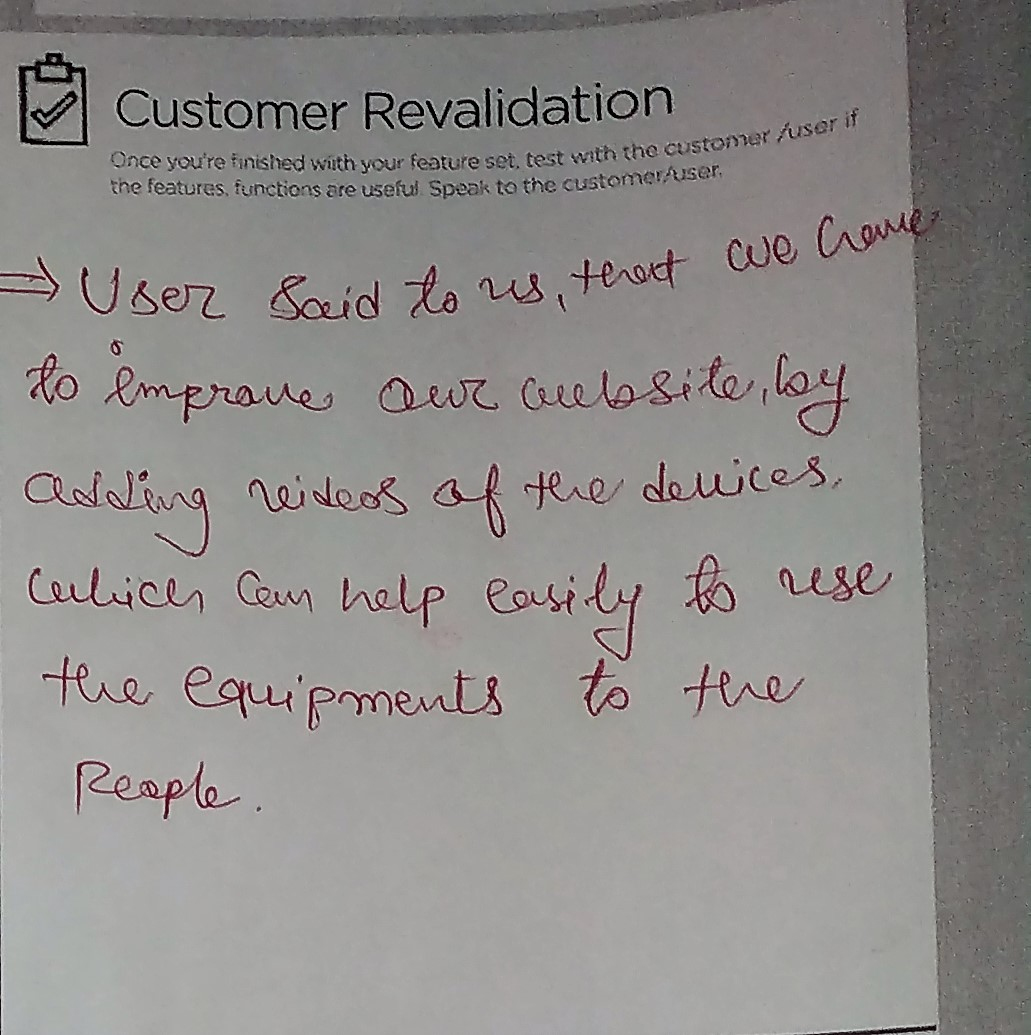 Customer Revalidation
Once you're finished with your feature set, test with the customer /user if
the features, functions are useful. Speak to the customer/user.
⇒ User said to us, that we have
to improve our website, by
adding videos of the devices.
which can help easily to use
the equipments to the
People.